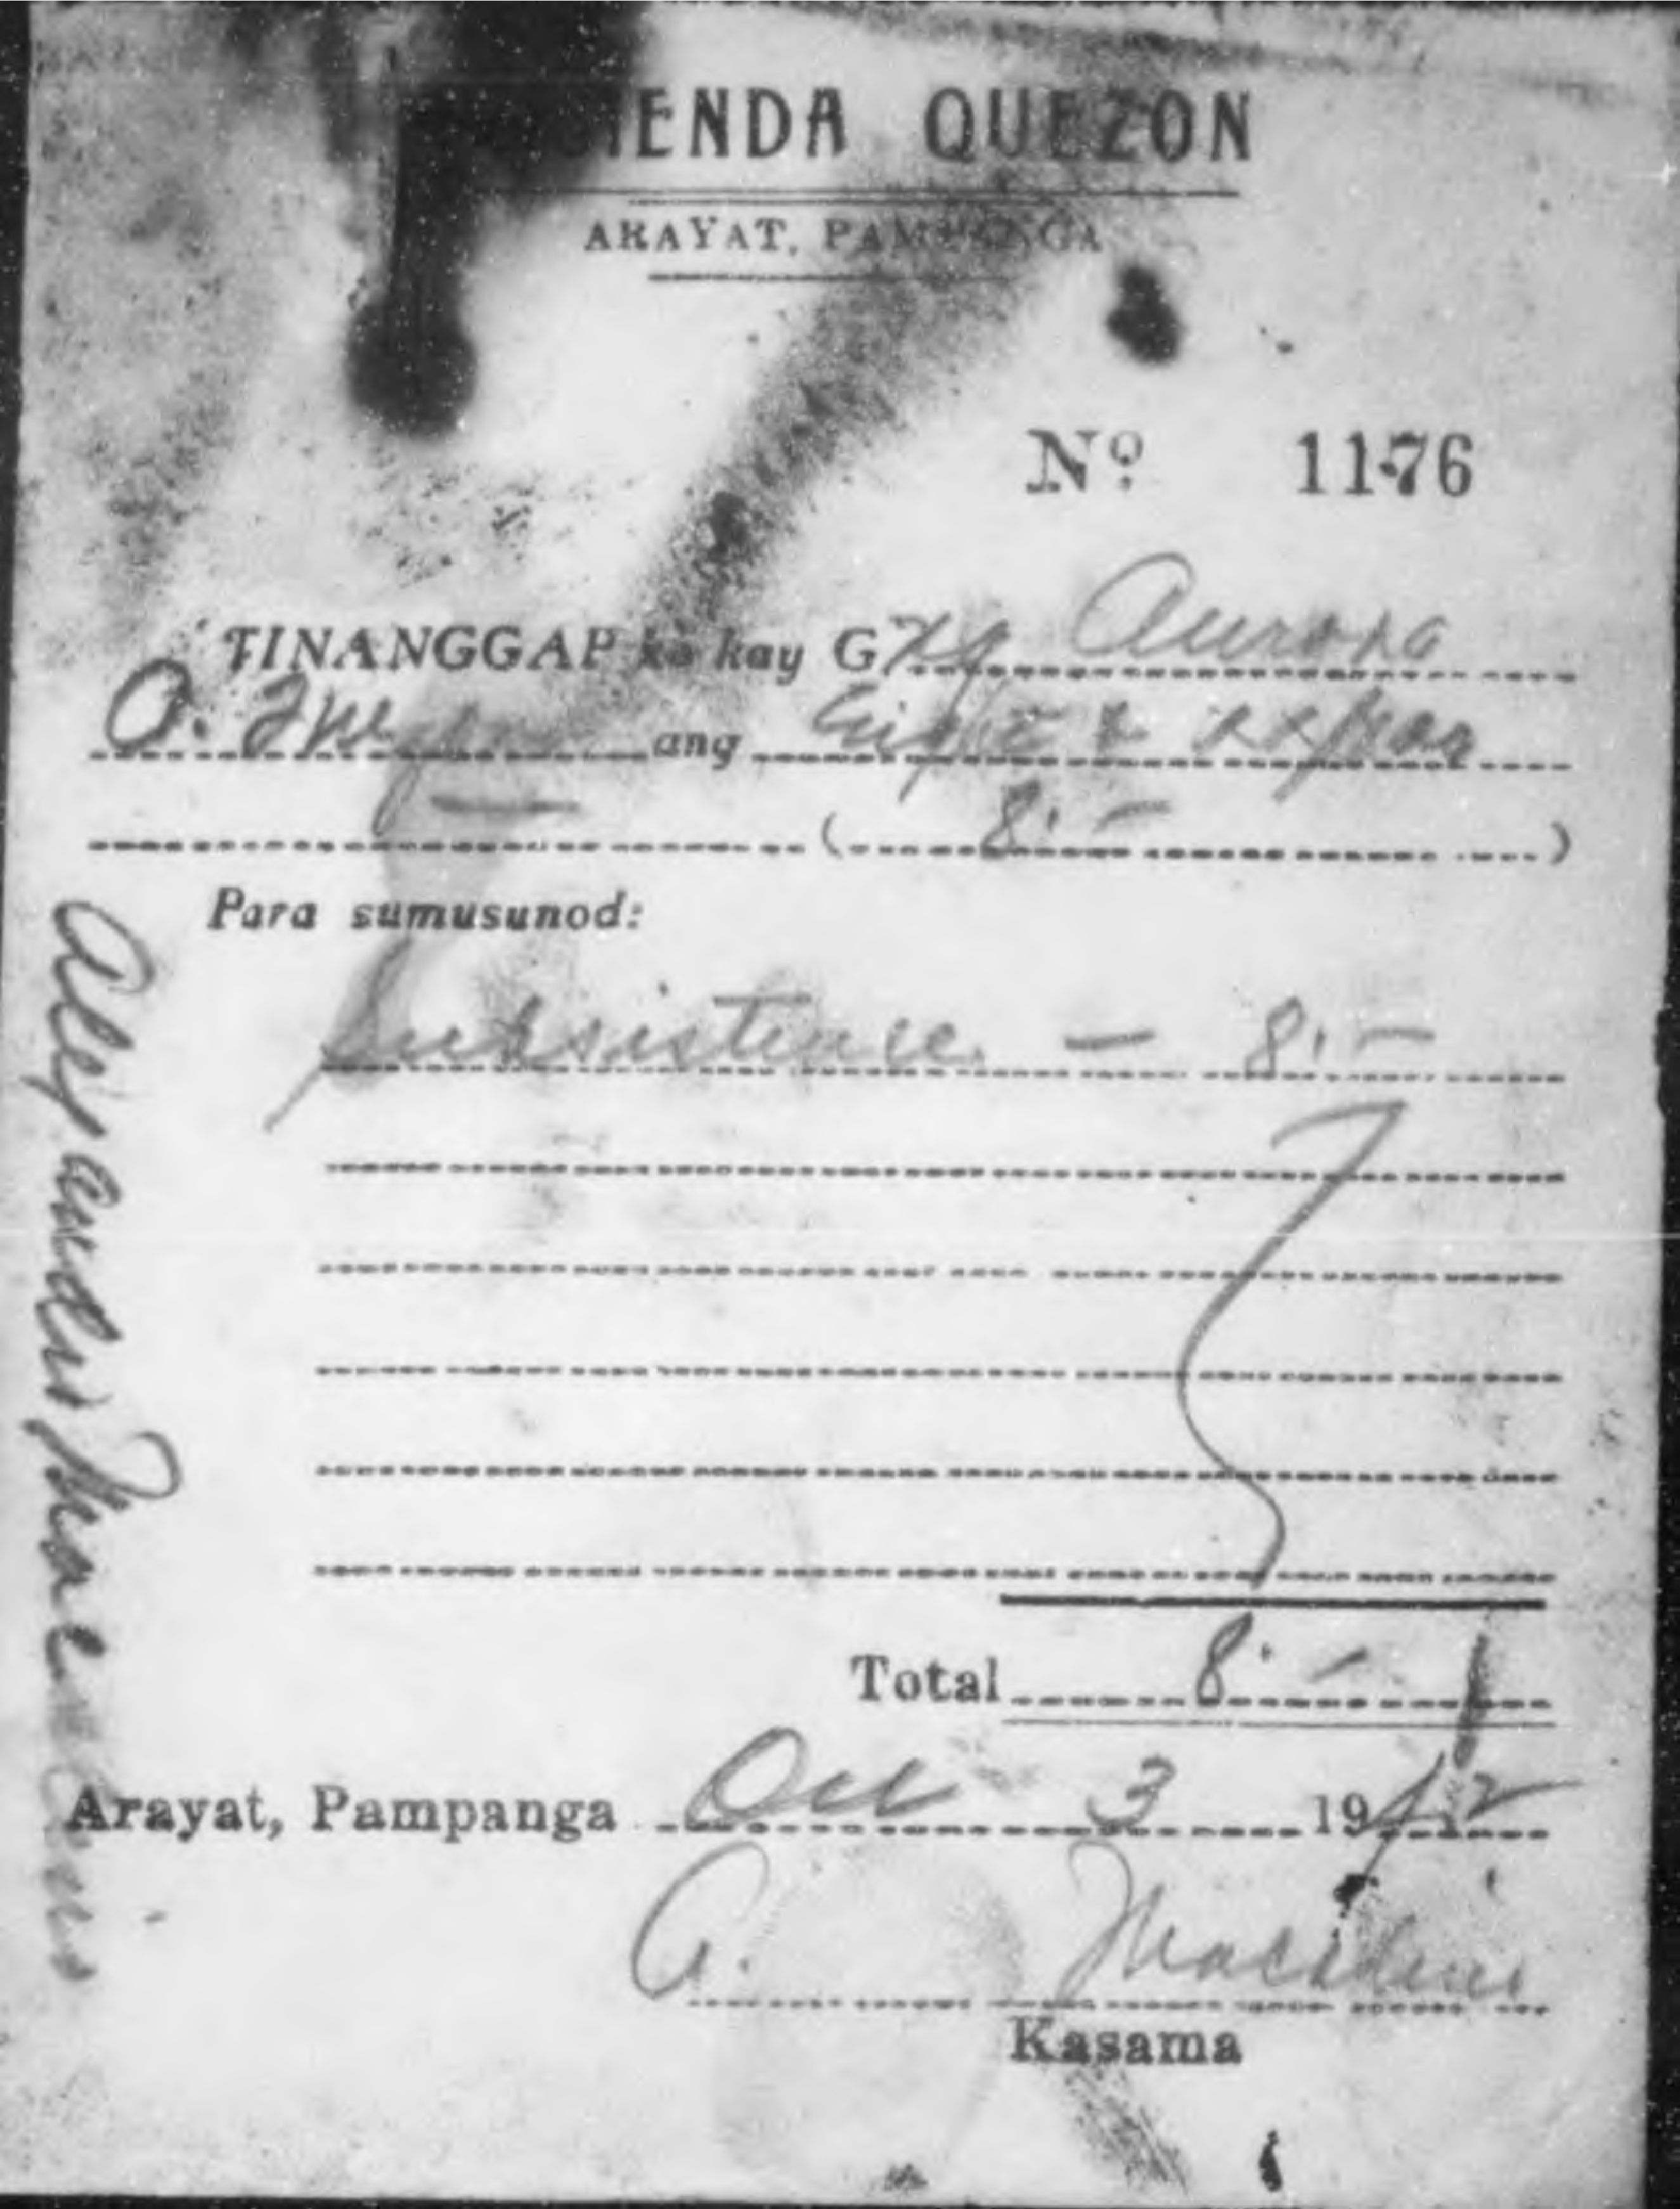 IENDA QUEZON
ARAYAT, PAMPANGA
Nº 1176
TINANGGAP ko kay G Aurora
A. ang Eight &
( 8.- )
Para sumusunod:
Subsistence - 8.-
Total 8.-
Arayat, Pampanga 3 1942
A.
Kasama
Alejandro